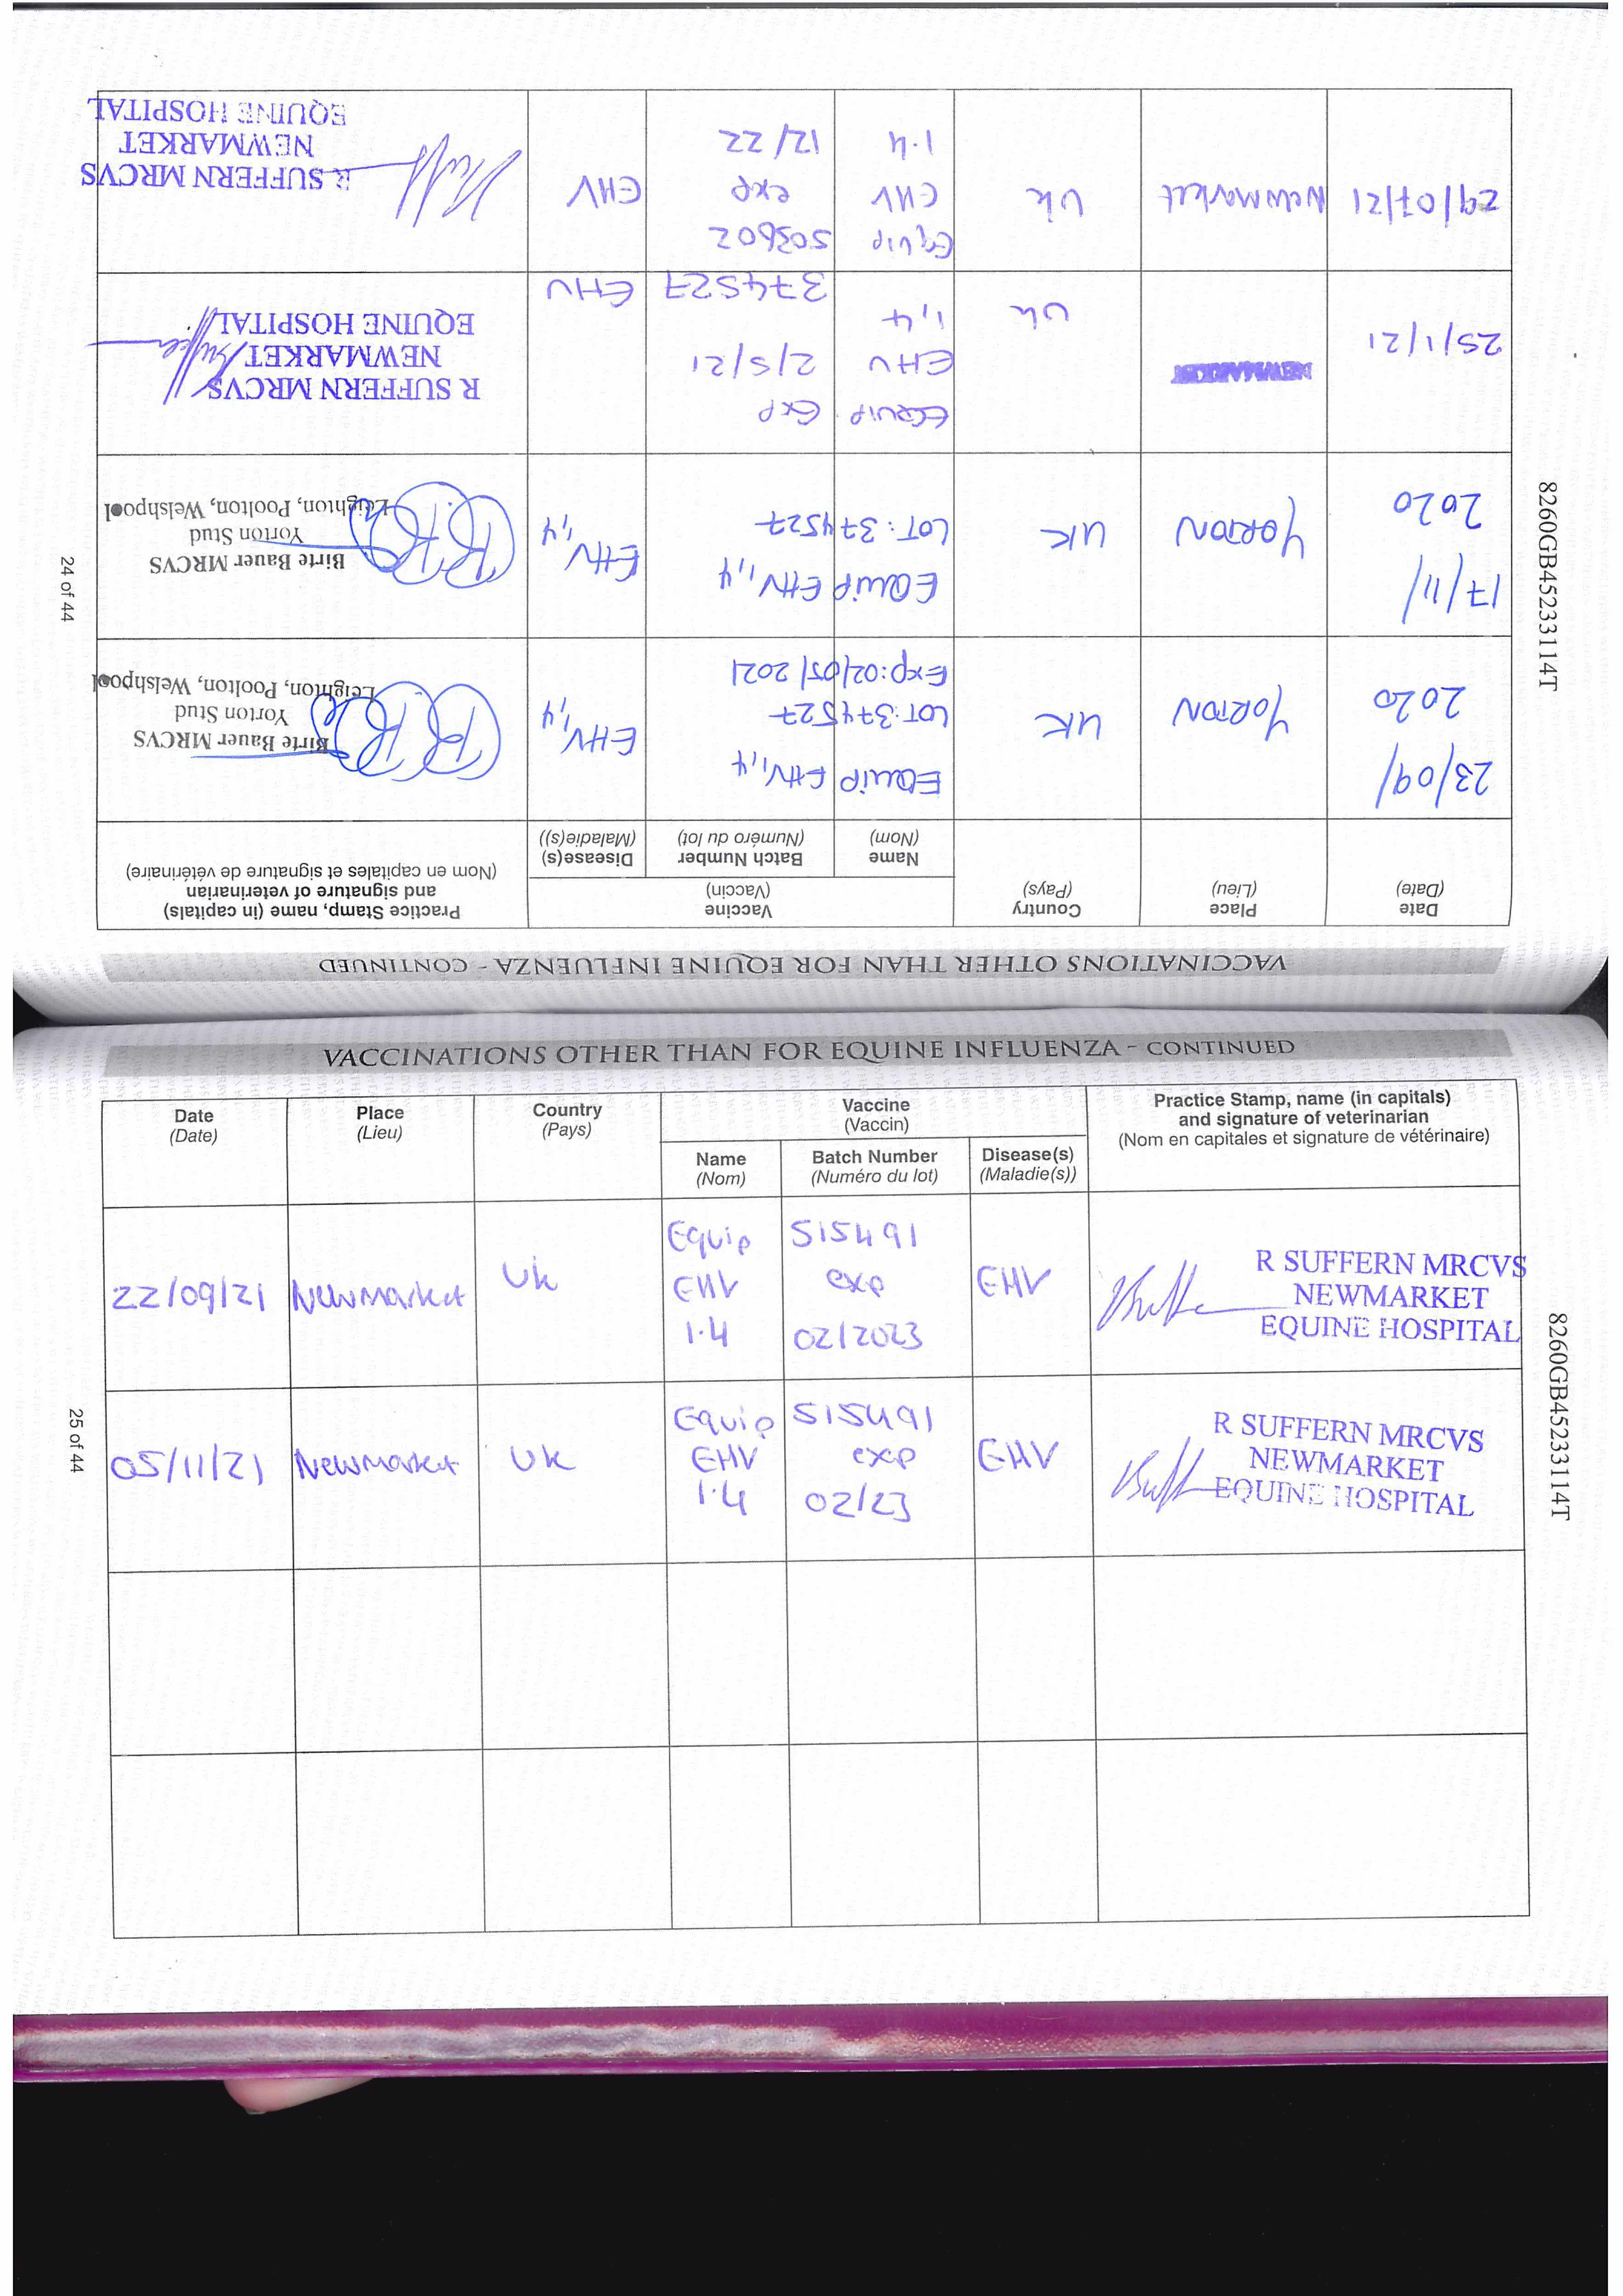 VACCINATIONS OTHER THAN FOR EQUINE INFLUENZA - CONTINUED
Date
(Date)
Place
(Lieu)
Country
(Pays)
Vaccine
(Vaccin)
Name
(Nom)
Batch Number
(Numéro du lot)
Disease(s)
(Maladie(s))
Practice Stamp, name (in capitals)
and signature of veterinarian
(Nom en capitales et signature de vétérinaire)
23/09/
2020
YORTON
UK
EQUIP EHV 1,4
LOT: 374527
Exp: 02/05/2021
EHV 1,4
Birte Bauer MRCVS
Yorton Stud
Leighton, Poolton, Welshpool
17/11/
2020
YORTON
UK
EQUIP EHV 1,4
LOT: 374527
EHV 1,4
Birte Bauer MRCVS
Yorton Stud
Leighton, Poolton, Welshpool
25/1/21
NEWMARKET
Uk
EQUIP
EHV
1,4
Exp
2/5/21
374527
EHV
R SUFFERN MRCVS
NEWMARKET
EQUINE HOSPITAL
29/07/21
Newmarket
Uk
Equip
EHV
1.4
503602
exp
12/22
EHV
R SUFFERN MRCVS
NEWMARKET
EQUINE HOSPITAL
24 of 44
8260GB45233114T
VACCINATIONS OTHER THAN FOR EQUINE INFLUENZA - CONTINUED
Date
(Date)
Place
(Lieu)
Country
(Pays)
Vaccine
(Vaccin)
Name
(Nom)
Batch Number
(Numéro du lot)
Disease(s)
(Maladie(s))
Practice Stamp, name (in capitals)
and signature of veterinarian
(Nom en capitales et signature de vétérinaire)
22/09/21
Newmarket
Uk
Equip
EHV
1.4
515491
exp
02/2023
EHV
R SUFFERN MRCVS
NEWMARKET
EQUINE HOSPITAL
05/11/21
Newmarket
Uk
Equip
EHV
1.4
515491
exp
02/23
EHV
R SUFFERN MRCVS
NEWMARKET
EQUINE HOSPITAL
25 of 44
8260GB45233114T